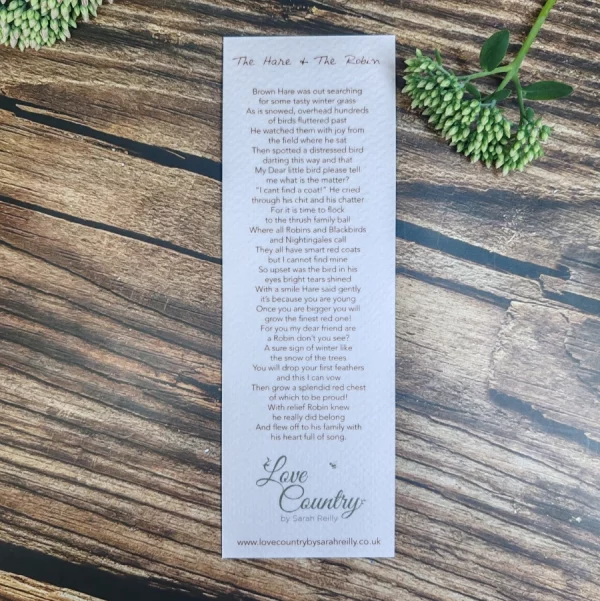 The Hare & The Robin
Brown Hare was out searching
for some tasty winter grass
As is snowed, overhead hundreds
of birds fluttered past
He watched them with joy from
the field where he sat
Then spotted a distressed bird
darting this way and that
My Dear little bird please tell
me what is the matter?
"I cant find a coat!" He cried
through his chit and his chatter
For it is time to flock
to the thrush family ball
Where all Robins and Blackbirds
and Nightingales call
They all have smart red coats
but I cannot find mine
So upset was the bird in his
eyes bright tears shined
With a smile Hare said gintly
it's because you are young
Once you are bigger you will
grow the finest red one!
For you my dear friend are
a Robin don't you see?
A sure sign of winter like
the snow of the trees
You will drop your first feathers
and this I can vow
Then grow a splendid red chest
of which to be proud!
With relief Robin knew
he really did belong
And flew off to his family with
his heart full of song.
Love
Country
by Sarah Reilly
www.lovecountrybysarahreilly.co.uk